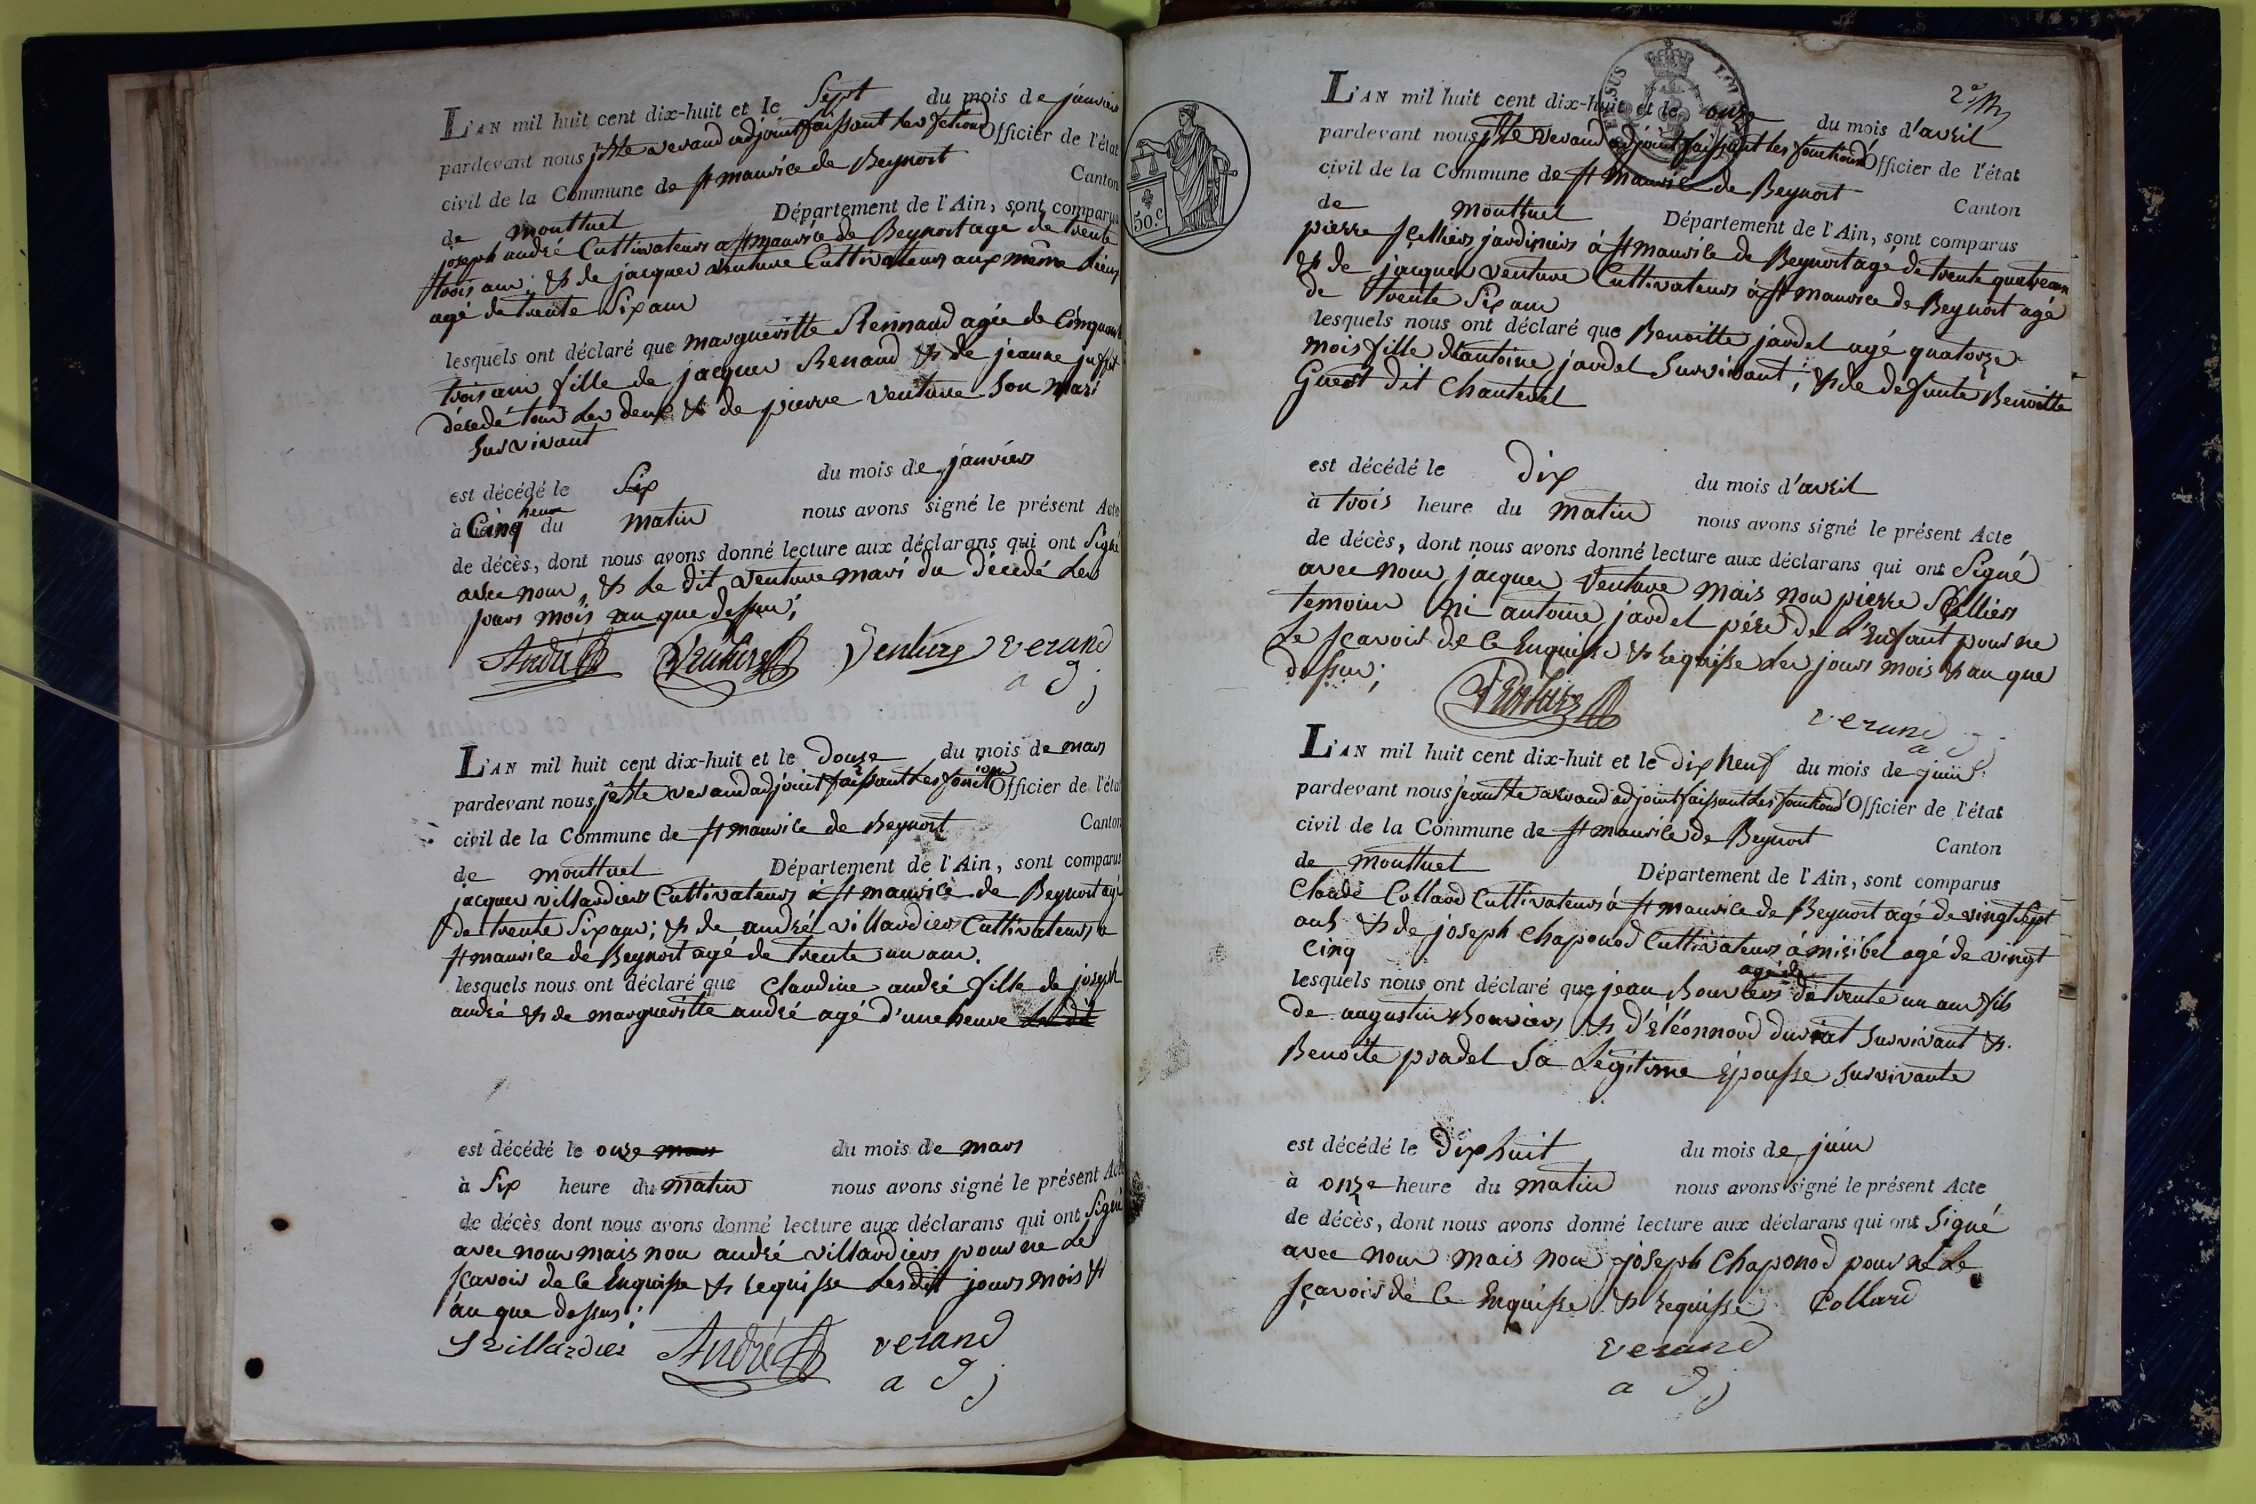 L'AN mil huit cent dix-huit et le Sept du mois de janvier
pardevant nous jbte verand adjoint faissant les fctiond Officier de l'état
civil de la Commune de st maurice de Beynost Canton
de monttuel Département de l'Ain, sont comparus
joseph andré Cultivateurs a st maurice de Beynost agé de trente
trois ans; & de jacques venture Cultivateurs aux même Lieus
agé de trente Six ans
lesquels ont déclaré que margueritte Rennaud agée de Cinquante
trois ans fille de jacques Renaud & de jeanne
décedé tous les deux & de pierre venture Son mari
Survivant
est décédé le Six du mois de janviers
à Cinq heure du matin nous avons signé le présent Acte
de décès, dont nous avons donné lecture aux déclarans qui ont Signé
avec nous, & Le dit venture mari du décedé Les
jours mois an que dessus;
André Venture Venture verand
a d j
L'AN mil huit cent dix-huit et le Douze du mois de mars
pardevant nous jbte verand adjoint faissant les fonction Officier de l'état
civil de la Commune de st maurice de Beynost Canton
de monttuel Département de l'Ain, sont comparus
jacques villardiers Cultivateurs à st maurice de Beynost agé
de trente Six ans; & de andré villardiers Cultivateurs a
st maurice de Beynost agé de trente un ans.
lesquels nous ont déclaré que Claudine andré fille de joseph
andré & de margueritte andré agé d'une heure
est décédé le onze mars du mois de mars
à Six heure du matin nous avons signé le présent Acte
de décès dont nous avons donné lecture aux déclarans qui ont Signé
avec nous mais non andré villardiers pour ne Le
sçavois de Ce Enquisse & requisse Lesdit jours mois &
an que dessus;
J villardier André verand
a d j
2e
50.c
L'AN mil huit cent dix-huit et le onze du mois d'avril
pardevant nous jbte verand adjoint faissant les fonctiond Officier de l'état
civil de la Commune de st maurice de Beynost Canton
de monttuel Département de l'Ain, sont comparus
pierre sçelliers jardiniers à st maurice de Beynost agé de trente quatre ans
& de jacques venture Cultivateurs à st maurice de Beynost agé
de trente Six ans
lesquels nous ont déclaré que Benoitte jardel agé quatorze
mois fille d'antoine jardel Survivant; & de defunte Benoitte
Guest dit Chantenel
est décédé le dix du mois d'avril
à trois heure du matin nous avons signé le présent Acte
de décès, dont nous avons donné lecture aux déclarans qui ont Signé
avec nous jacques venture mais non pierre Sçelliers
temoins ni antoine jardel pére de L'Enfant pour ne
Le sçavois de Ce Enquisse & requisse Les jours mois & an que
dessus;
Venture verand
a d j
L'AN mil huit cent dix-huit et le dix neuf du mois de juin
pardevant nous verand adjoint faissant les fonctiond Officier de l'état
civil de la Commune de st maurice de Beynost Canton
de monttuel Département de l'Ain, sont comparus
Claude Collard Cultivateurs à st maurice de Beynost agé de vingt Sept
ans & de joseph Chaponod Cultivateurs à miribel agé de vingt
cinq
lesquels nous ont déclaré que jean Bouviers agé de de trente un ans fils
de augustin Bouviers & d'Eléonnord survivant &.
Benoite pradel Sa Légitime Epousse survivante
est décédé le dix huit du mois de juin
à onze heure du matin nous avons signé le présent Acte
de décès, dont nous avons donné lecture aux déclarans qui ont signé
avec nous mais non joseph Chaponod pour ne Le
sçavois de Ce Enquisse & requisse Collard
verand
a d j